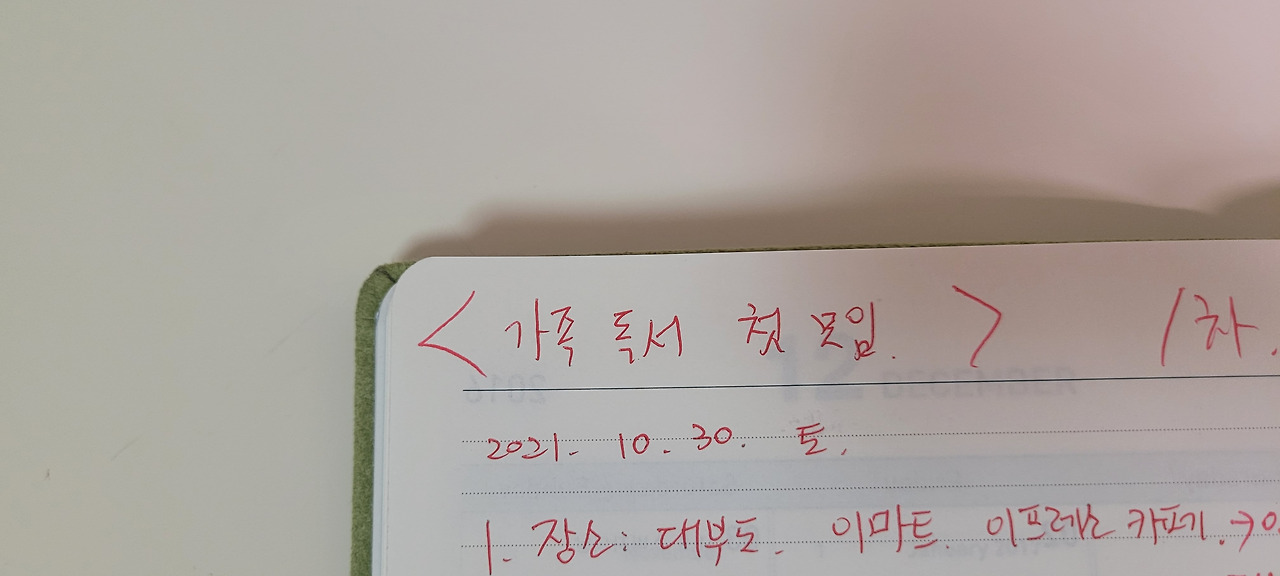 <가족 독서 첫 모임.> 1차.
2021. 10. 30. 토.
1. 장소: 대부도. 이마트. 이프레소 카페기. →